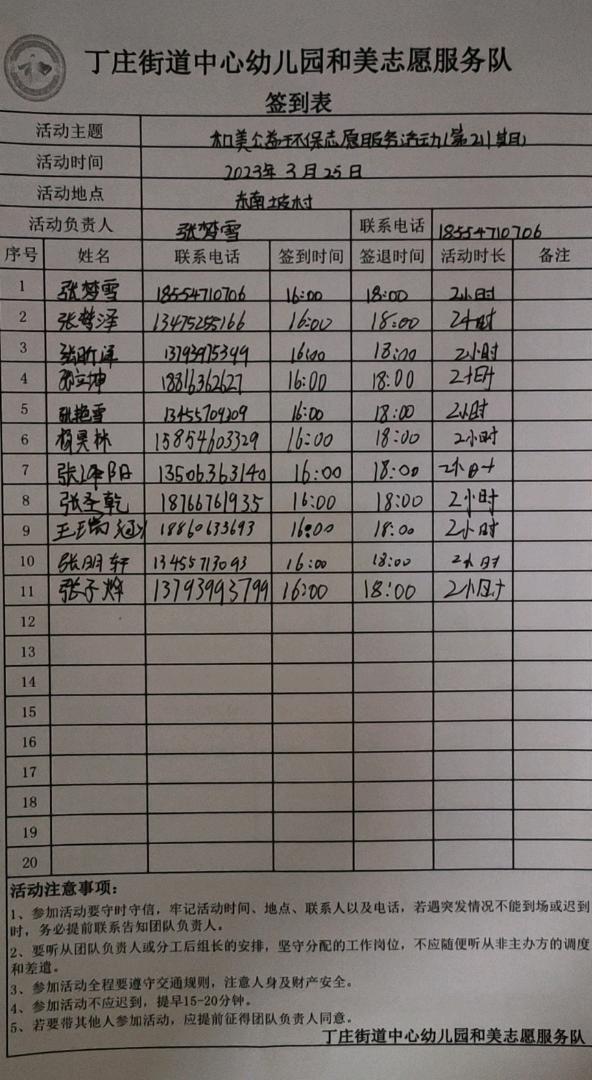 丁庄街道中心幼儿园和美志愿服务队
签到表
活动主题 和美公益环保志愿服务活动(第21期)
活动时间 2023年3月25日
活动地点 东南坡村
活动负责人 张梦雪 联系电话 18554710706
序号 姓名 联系电话 签到时间 签退时间 活动时长 备注
1 张梦雪 18554710706 16:00 18:00 2小时
2 张梦泽 13475255166 16:00 18:00 2小时
3 张昕泽 13793975349 16:00 18:00 2小时
4 18816362627 16:00 18:00 2小时
5 张艳雪 13455704209 16:00 18:00 2小时
6 杨昊林 15854603329 16:00 18:00 2小时
7 张泽阳 13506363140 16:00 18:00 2小时
8 张圣乾 18766761935 16:00 18:00 2小时
9 王瑞冠 18860633693 16:00 18:00 2小时
10 张明轩 13455713093 16:00 18:00 2小时
11 张子烨 13793993799 16:00 18:00 2小时
12
13
14
15
16
17
18
19
20
活动注意事项：
1、参加活动要守时守信，牢记活动时间、地点、联系人以及电话，若遇突发情况不能到场或迟到
时，务必提前联系告知团队负责人。
2、要听从团队负责人或分工后组长的安排，坚守分配的工作岗位，不应随便听从非主办方的调度
和差遣。
3、参加活动全程要遵守交通规则，注意人身及财产安全。
4、参加活动不应迟到，提早15-20分钟。
5、若要带其他人参加活动，应提前征得团队负责人同意。
丁庄街道中心幼儿园和美志愿服务队